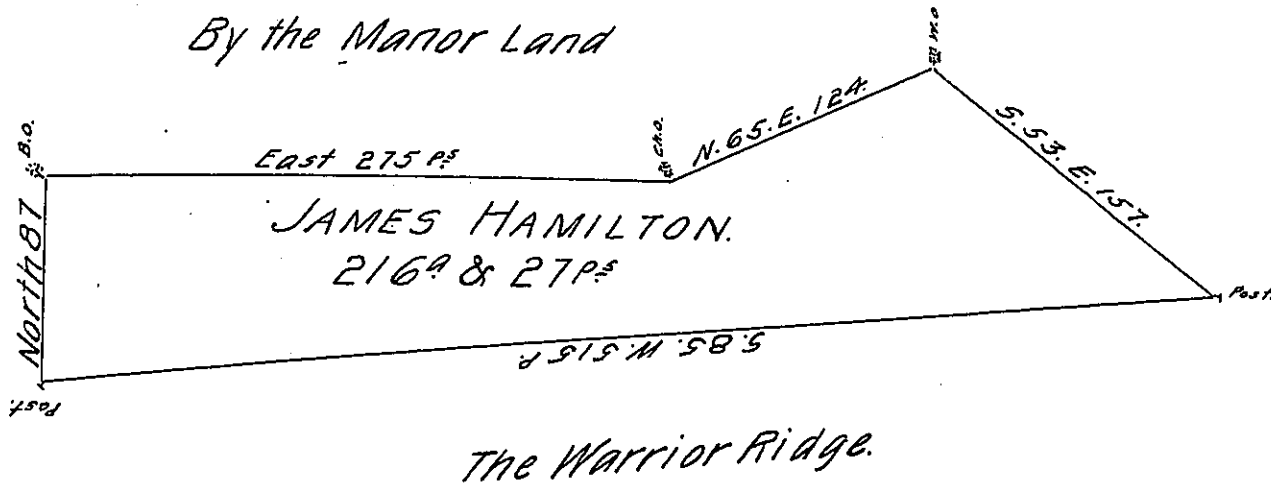 By the Manor Land
W.O
B.O.
East 275 Ps
Ch.O.
N. 65. E. 124.
S. 53. E. 157.
North 87
JAMES HAMILTON.
216a & 27Ps
Post.
S. 85. W. 515 P.
Post.
The Warrior Ridge.